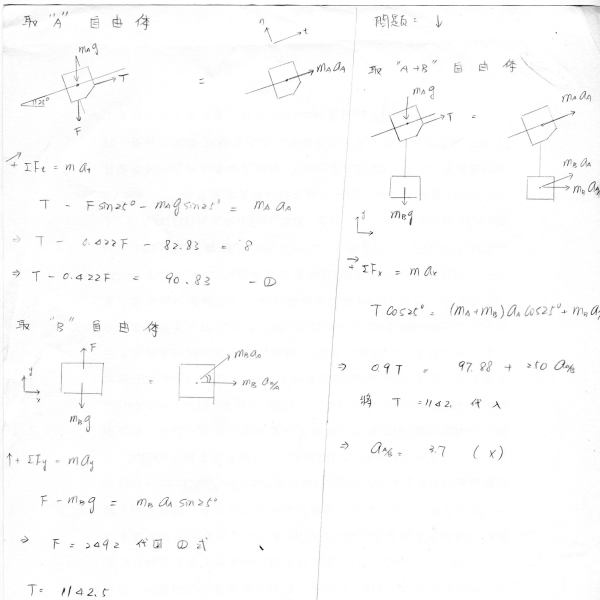 取 "A" 自由体
n
t
mAg
T
=
mA aA
25°
F
+ ΣFt = m at
T - F sin25° - mAg sin25° = mA aA
⇒ T - 0.422F - 82.83 = 8
⇒ T - 0.422F = 90.83 - ①
取 "B" 自由体
F
y
x
=
mB aA
mB aB/A
mBg
↑+ ΣFy = m ay
F - mBg = mB aA sin25°
⇒ F = 2492 代回 ① 式
T = 1142.5
問題: ↓
取 "A+B" 自由体
mAg
T
=
mA aA
mB aA
mB aB/A
mBg
y
+ ΣFx = m ax
T cos25° = (mA+mB) aA cos25° + mB a
⇒ 0.9T = 97.88 + 250 aB/A
將 T = 1142. 代入
⇒ aA/B = 3.7 (x)